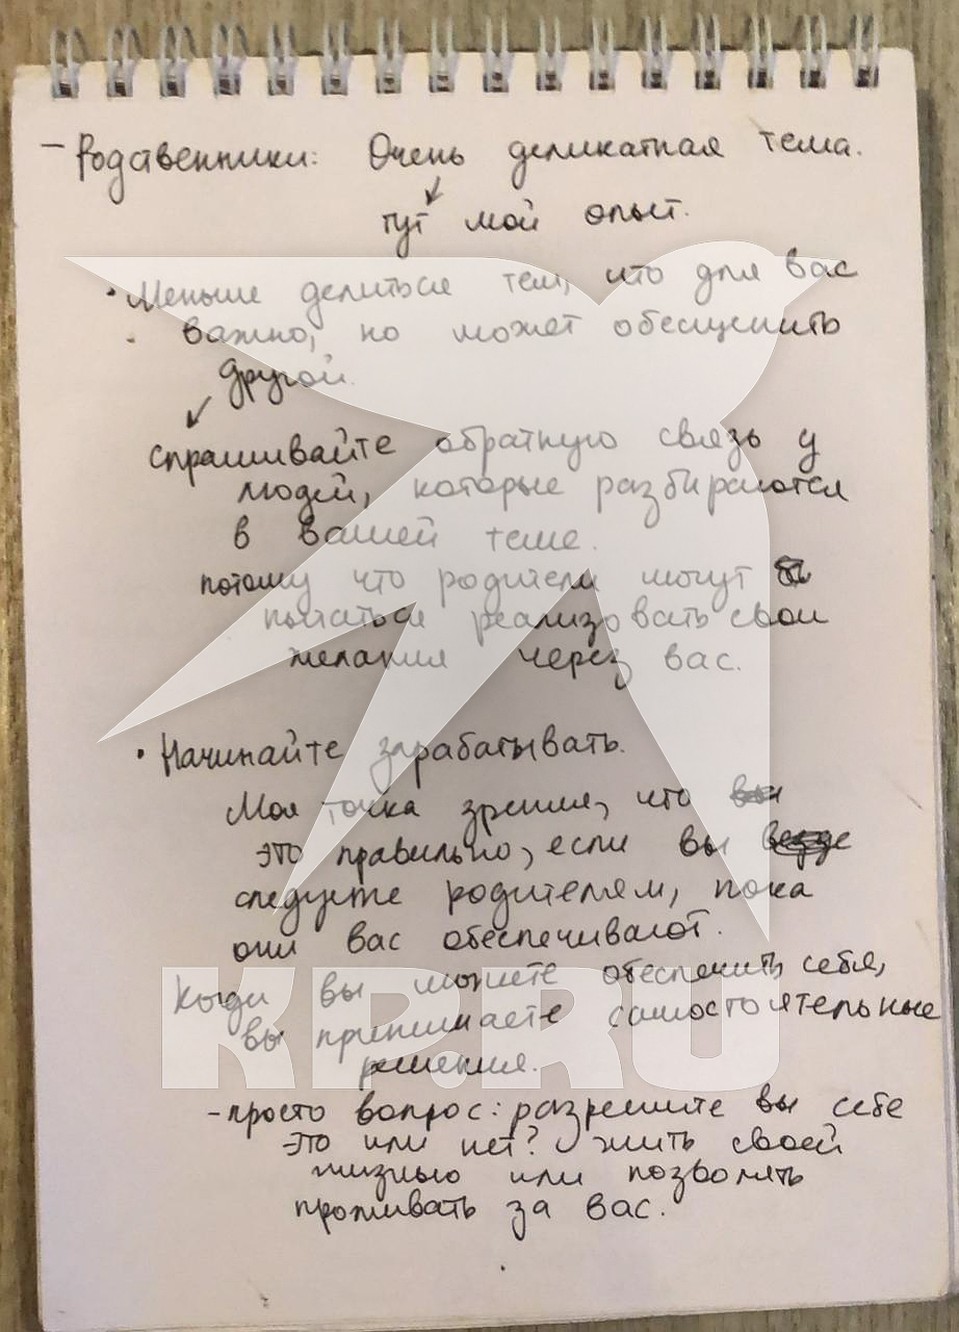 – Родственники: Очень деликатная тема.
тут мой опыт.
• Меньше делиться тем, что для вас
важно, но может обесценить
другой.
спрашивайте обратную связь у
людей, которые разбираются
в вашей теме.
потому что родители могут
пытаться реализовать свои
желания через вас.
• Начинайте зарабатывать.
Моя точка зрения, что
это правильно, если вы
следуете родителям, пока
они вас обеспечивают.
Когда вы можете обеспечить себя,
вы принимаете самостоятельные
решения.
– просто вопрос: разрешите вы себе
это или нет? жить своей
жизнью или позволять
проживать за вас.
KP.RU